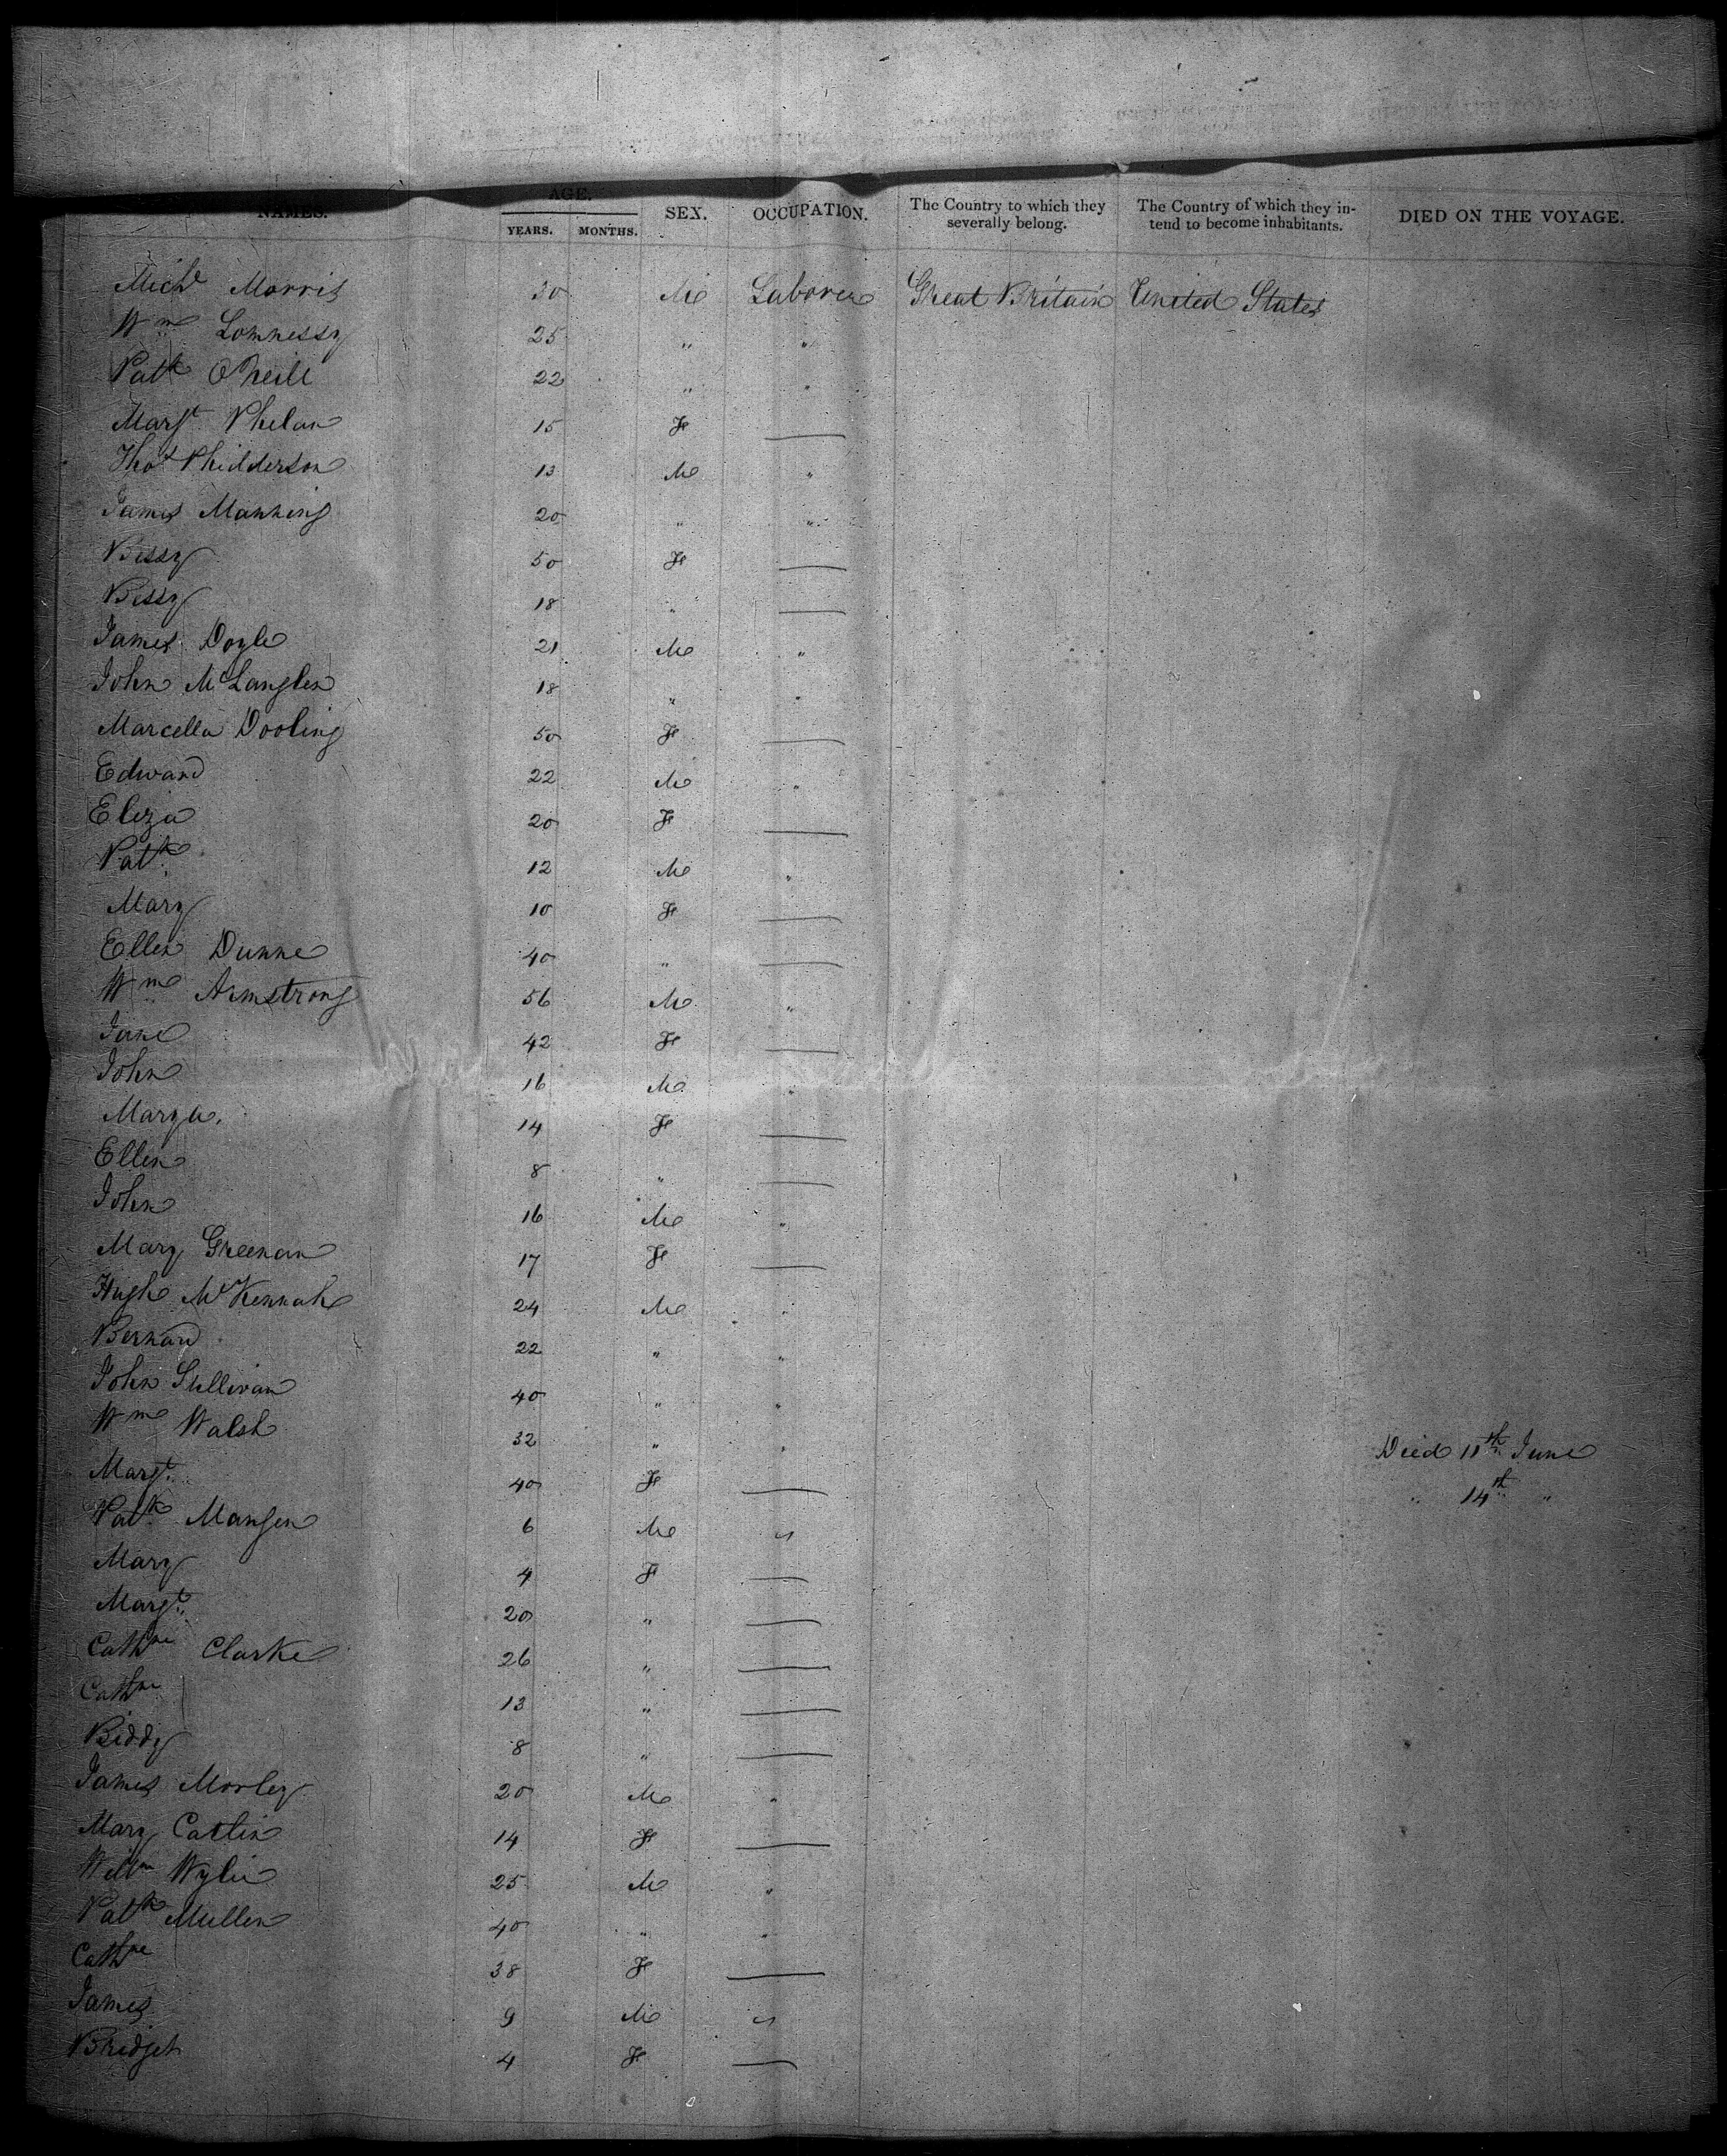 NAMES. AGE. YEARS. MONTHS. SEX. OCCUPATION. The Country to which they severally belong. The Country of which they intend to become inhabitants. DIED ON THE VOYAGE.
Michl Morris 30 M Laborer Great Britain United States
Wm Lomnessy 25 " "
Patk O'Neill 22 " "
Margt Phelan 15 F —
Thos Phidderson 13 M "
James Manning 20 " "
Bessy 50 F —
Bessy 18 " —
James Doyle 21 M "
John McLanglen 18 " "
Marcella Dooling 50 F —
Edward 22 M "
Eliza 20 F —
Patk 12 M "
Mary 10 F —
Ellen Dunne 40 " —
Wm Armstrong 56 M "
Jane 42 F —
John 16 M "
Marya. 14 F —
Ellen 8 " —
John 16 M "
Mary Greenan 17 F —
Hugh McKennah 24 M "
Bernard 22 " "
John Sullivan 40 " "
Wm Walsh 32 " " Died 11th June
Margt 40 F — " 14th "
Patk Mangen 6 M "
Mary 4 F —
Margt. 20 " —
Cathne Clarke 26 " —
Cathne 13 " —
Biddy 8 " —
James Morley 20 M "
Mary Catlin 14 F —
Willm Wylie 25 M "
Patk Mullen 40 " "
Cathne 38 F —
James 9 M "
Bridget 4 F —